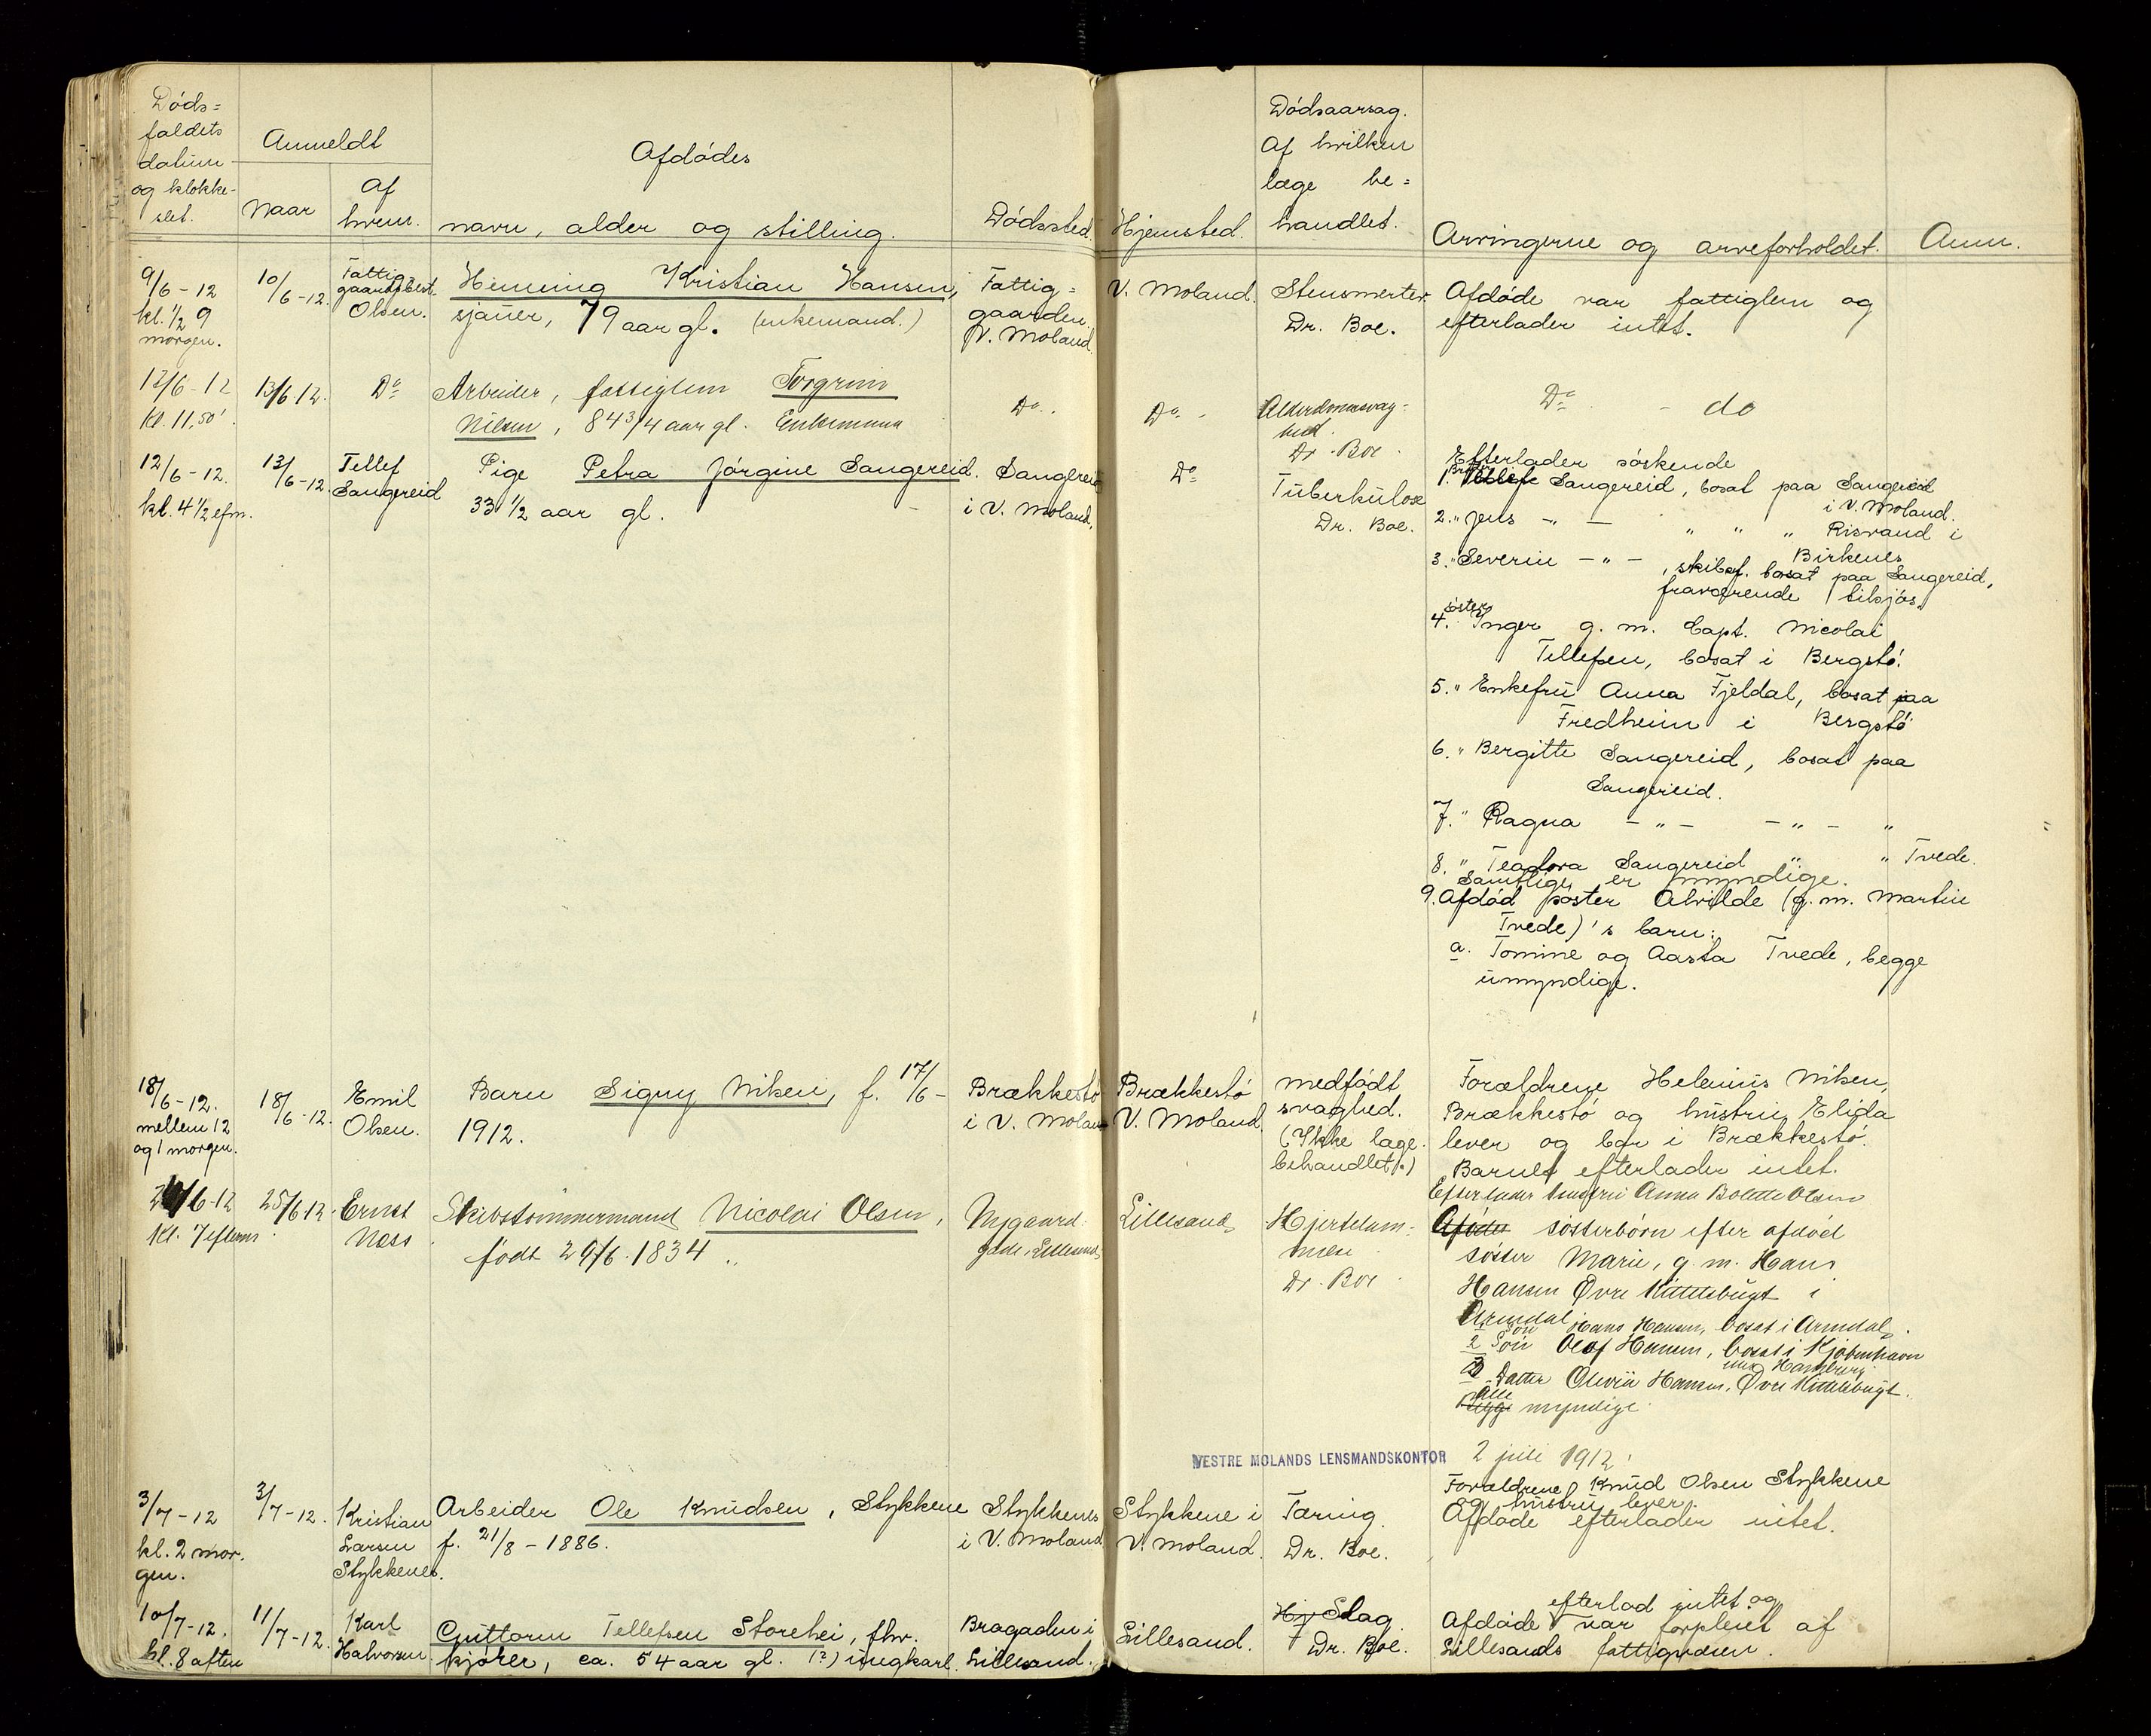 Döds=
faldets
datum
og klokke-
slet.
Anmeldt
Naar
Af
hvem.
Afdödes
navn, alder og stilling.
Dödssted.
Hjemsted.
Dödsaarsag.
Af hvilken
læge be=
handlet.
Arvingerne og arveforholdet.
Anm.
9/6-12
kl. 1/2 9
morgen.
10/6-12.
Fattig
gaardsbest.
Olsen.
Henning Kristian Hansen,
sjauer, 79 aar gl. (enkemand.)
Fattig=
gaarden
V. Moland.
V. Moland.
Stensmerter.
Dr. Boe.
Afdöde var fattiglem og
efterlader intet.
12/6-12
Kl. 11,50'.
13/6 12.
Do
Arbeider, fattiglem Torgrim
Nilsen, 84 3/4 aar gl. Enkemann
Do.
Do.
Alderdomssvag-
hed.
Dr. Boe.
Do - do
12/6-12.
kl. 4 1/2 efm.
13/6-12.
Tellef
Sangereid
Pige Petra Jörgine Sangereid.
33 1/2 aar gl.
Sangereid
i V. Moland.
Do
Tuberkulose
Dr. Boe.
Efterlader söskende
1. Broder Tellef Sangereid, bosat paa Sangereid
i V. Moland.
2. " Jens - " - " " " Risvand i
Birkenes
3. " Severin - " -, skibsf. bosat paa Sangereid,
fraværende tilsjös.
4. söster Inger g. m. Capt. Nicolai
Tellefsen, bosat i Bergstö.
5. " Enkefru Anna Fjeldal, bosat paa
Fredheim i Bergstö
6. " Bergitte Sangereid, bosat paa
Sangereid.
7. " Ragna - " - - " - "
8. " Teadora Sangereid " " Tvede.
Samtlige er myndige.
9. Afdöd söster Alvilde (g. m. Martin
Tvede)'s barn:
a. Tomine og Aasta Tvede, begge
umyndige.
18/6-12.
mellem 12
og 1 morgen.
18/6-12.
Emil
Olsen.
Barn Signy Nilsen, f. 17/6-
1912.
Brækkestö
i V. Moland
Brækkestö
V. Moland.
Medfödt
svaghed.
(Ikke læge-
behandlet.)
Forældrene Helenius Nilsen,
Brækkestö og hustru Elida
lever og bor i Brækkestö.
Barnet efterlader intet.
/6-12
Kl. 7 efterm.
25/6 12.
Ernst
Næss
Skibstömmermand Nicolai Olsen,
födt 29/6. 1834.
Nygaard
gade, Lillesand
Lillesand
Hjertelam-
melse
Dr. Boe.
Efterlader hustru Anna Bolette Olsen
Afdöde sösterbörn efter afdöd
söster Marie, g. m. Hans
Hansen Övre Kittelsbugt i
Arendal
Sön Hans Hansen, bosat i Arendal.
2 Sön Olaf Hansen, bosat i Kjöbenhavn
Hamburg.
3 Datter Olivia Hansen, Övre Kittelsbugt.
Alle
begge myndige
VESTRE MOLANDS LENSMANDSKONTOR 2 juli 1912.
3/7-12
kl. 2 mor-
gen.
3/7-12.
Kristian
Larsen
Stykkenes.
Arbeider Ole Knudsen, Stykkene
f. 21/8-1886.
Stykkenes
i V. Moland
Stykkene i
V. Moland.
Tæring.
Dr. Boe.
Forældrene Knud Olsen Stykkene
og hustru lever.
Afdöde efterlader intet.
10/7-12.
kl. 8 aften
11/7-12.
Karl
Halvorsen
Guttorm Tellefsen Storehei, fhv.
kjörer, ca. 54 aar gl. (?) ungkarl.
Brogaden i
Lillesand.
Lillesand.
Hj Slag
Dr. Boe.
efterlod intet og
Afdöde var forpleiet af
Lillesands fattigvæsen.